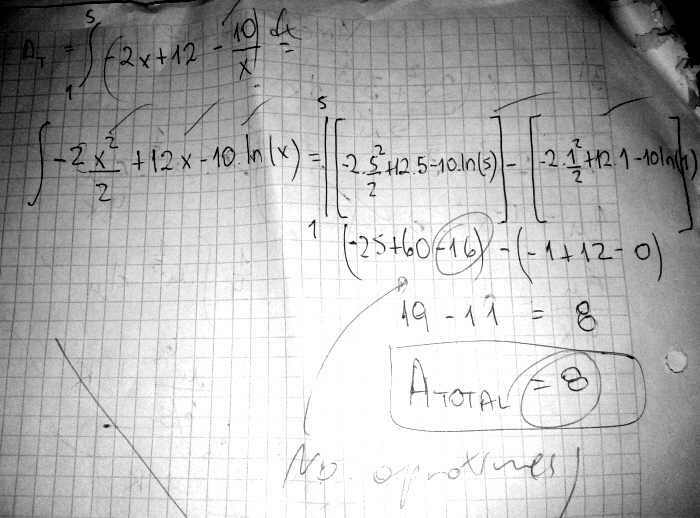 A_T = ∫₁⁵ (-2x+12 - 10/x) dx =
∫ -2x²/2 + 12x - 10.ln(x) = |₁⁵ [-2.5²/2 + 12.5 - 10.ln(5)] - [-2.1²/2 + 12.1 - 10 ln(1)]
(-25+60-16) - (-1+12-0)
19 - 11 = 8
A_TOTAL = 8
No aproximes!